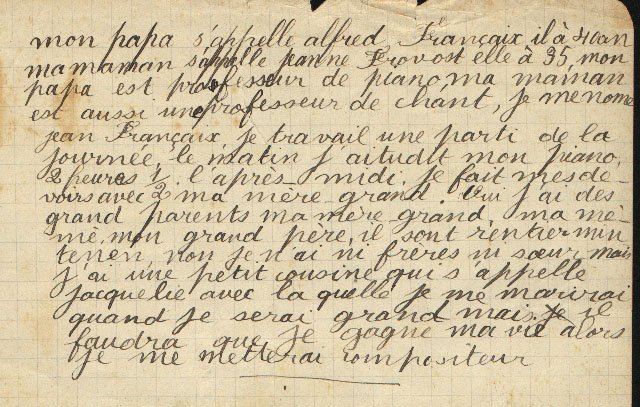 mon papa s'appelle alfred Françaix il à 40 an
ma maman s'appelle jeanne Provost elle à 35, mon
papa est professeur de piano, ma maman
est aussi une professeur de chant, je me nome
jean Françaix, je travail une parti de la
journée, le matin j'aitudit mon piano,
2 heures ½. l'après midi, je fait mes de
voirs avec ma mère grand. Oui j'ai des
grand parents ma mère grand, ma mé-
mè, mon grand père, il sont rentier min
tenen, non je n'ai ni frères ni sœur, mais
j'ai une petit cousine qui s'appelle
jacquelie avec la quelle je me marirai
quand je serai grand mais, il
faudra que je gagne ma vie alors
je me metterai compositeur